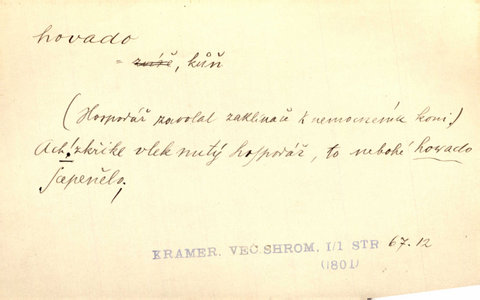 hovado
= zvíře, kůň
(Hospodář zavolal zaklínače k nemocnému koni.)
Ach, zkřikl vleknutý hospodář, to nebohé howado
scepenělo,
KRAMER. VEČ.SHROM. I/1 STR 67.12
(1801)